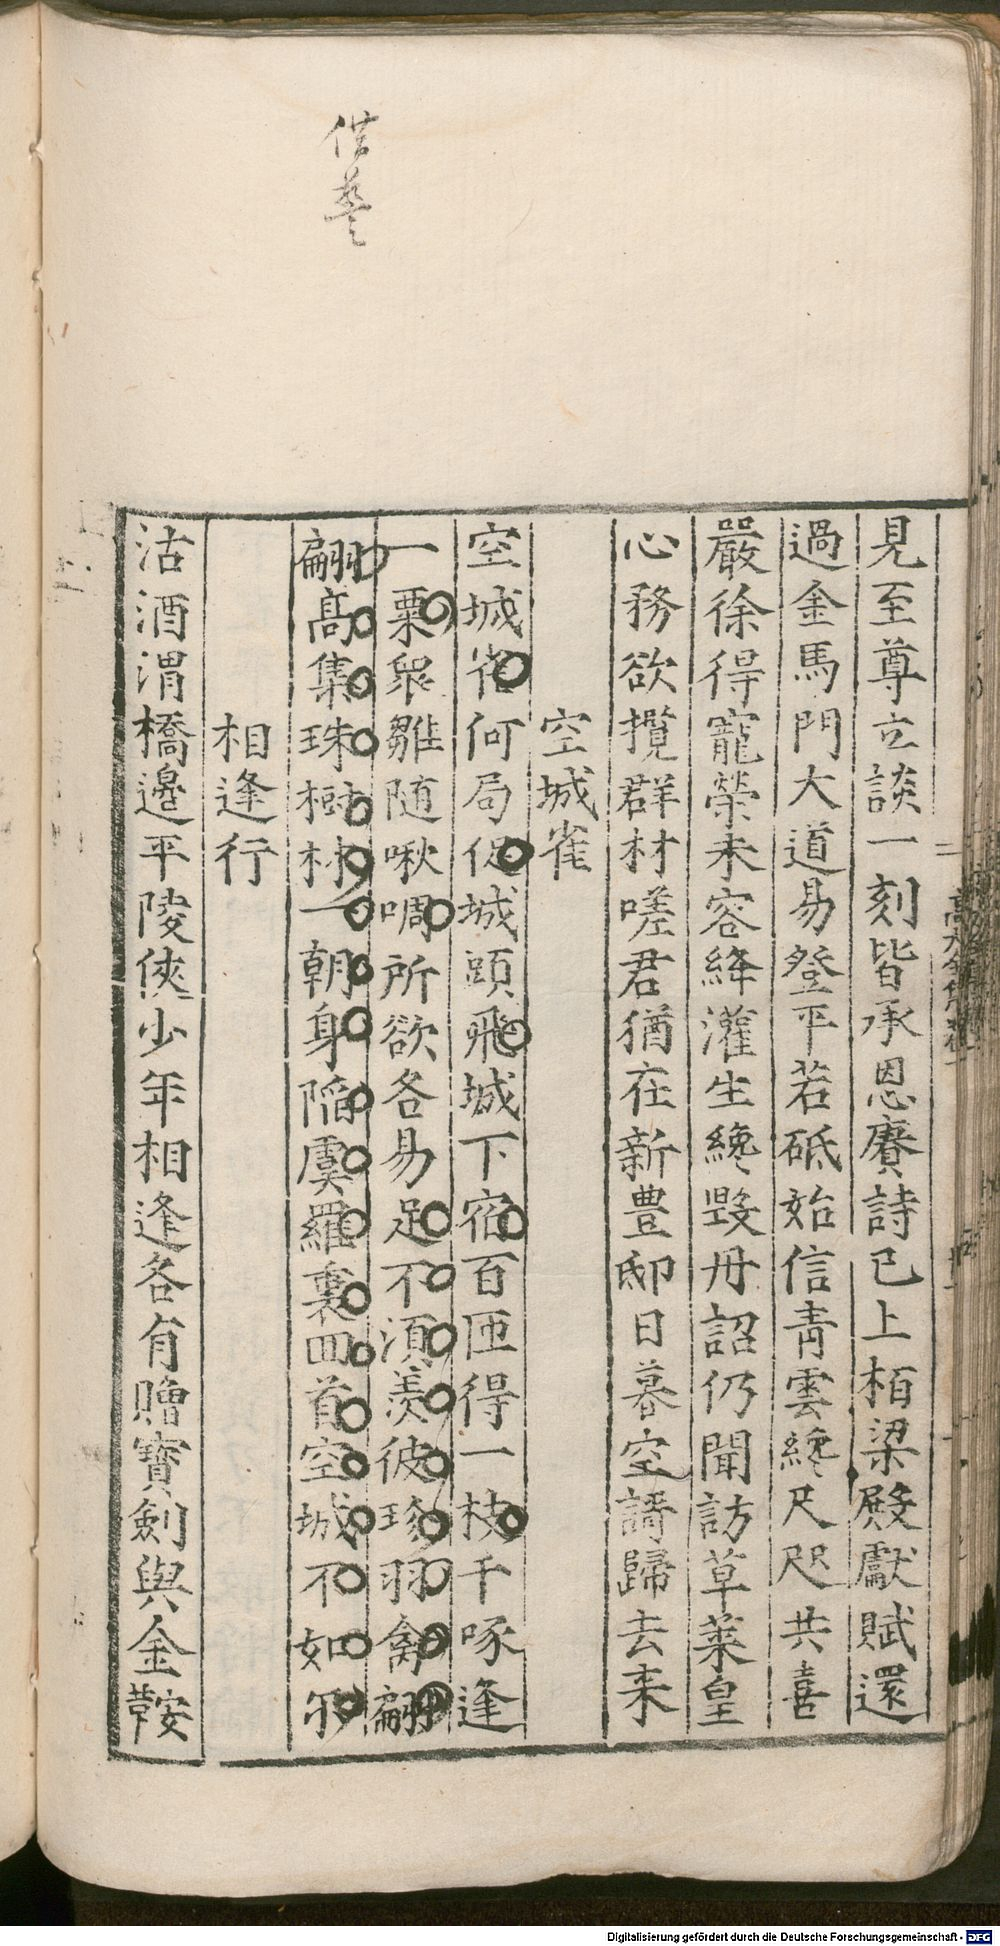 見至尊立談一刻皆承恩賡詩已上栢梁殿獻賦還
過金馬門大道易登平若砥始信青雲纔尺咫共喜
嚴徐得寵榮未容絳灌生纔毀毋詔仍聞訪草萊皇
心務欲攬群材嗟君猶在新豊邸日暮空謌歸去来
空城雀
空城雀何局促城頭飛城下宿百匝得一枝千啄逢
一粟衆雛随啾啁所欲各易足不湏羡彼珍羽禽翩
翩髙集珠樹林一朝身陷虞羅裏囬首空城不如尓
相逢行
沽酒渭橋邉平陵俠少年相逢各有贈寳劍與金鞍
Digitalisierung gefördert durch die Deutsche Forschungsgemeinschaft - DFG